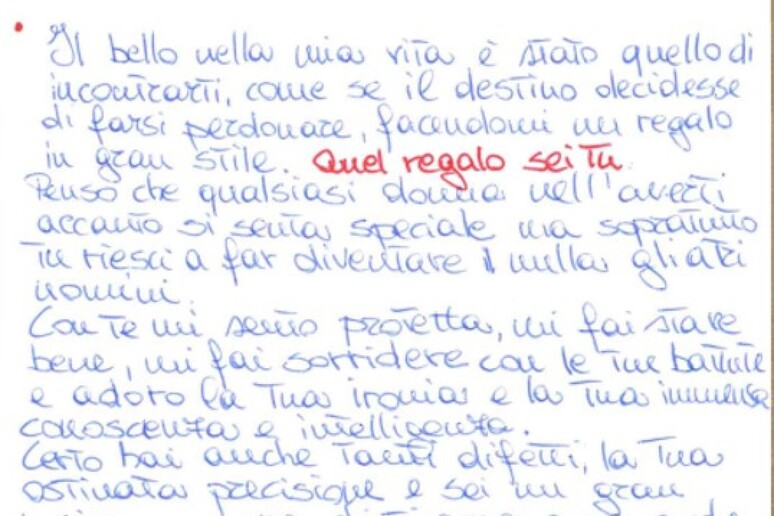 Il bello nella mia vita è stato quello di
incontrarti, come se il destino decidesse
di farsi perdonare, facendomi un regalo
in gran stile. Quel regalo sei Tu
Penso che qualsiasi donna nell'averti
accanto si senta speciale ma sopratutto
Tu riesci a far diventare nulla gli altri
uomini.
Con Te mi sento protetta, mi fai stare
bene, mi fai sorridere con le Tue battute
e adoro la Tua ironia e la Tua immensa
conoscenza e intelligenza.
Certo hai anche Tanti difetti, la Tua
ostinata precisione e sei un gran